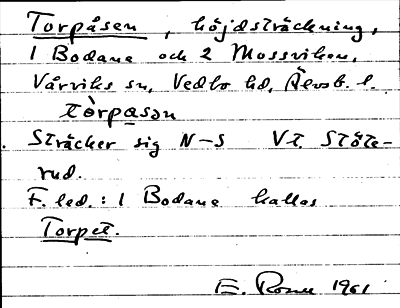 Torpåsen, höjdsträckning,
1 Bodane och 2 Mossviken,
Vårviks sn, Vedbo hd, Älvsb. l.
tòrpasən
Sträcker sig N-S V t. Stöte-
rud.
F. led.: 1 Bodane kallas
Torpet.
E. 1961